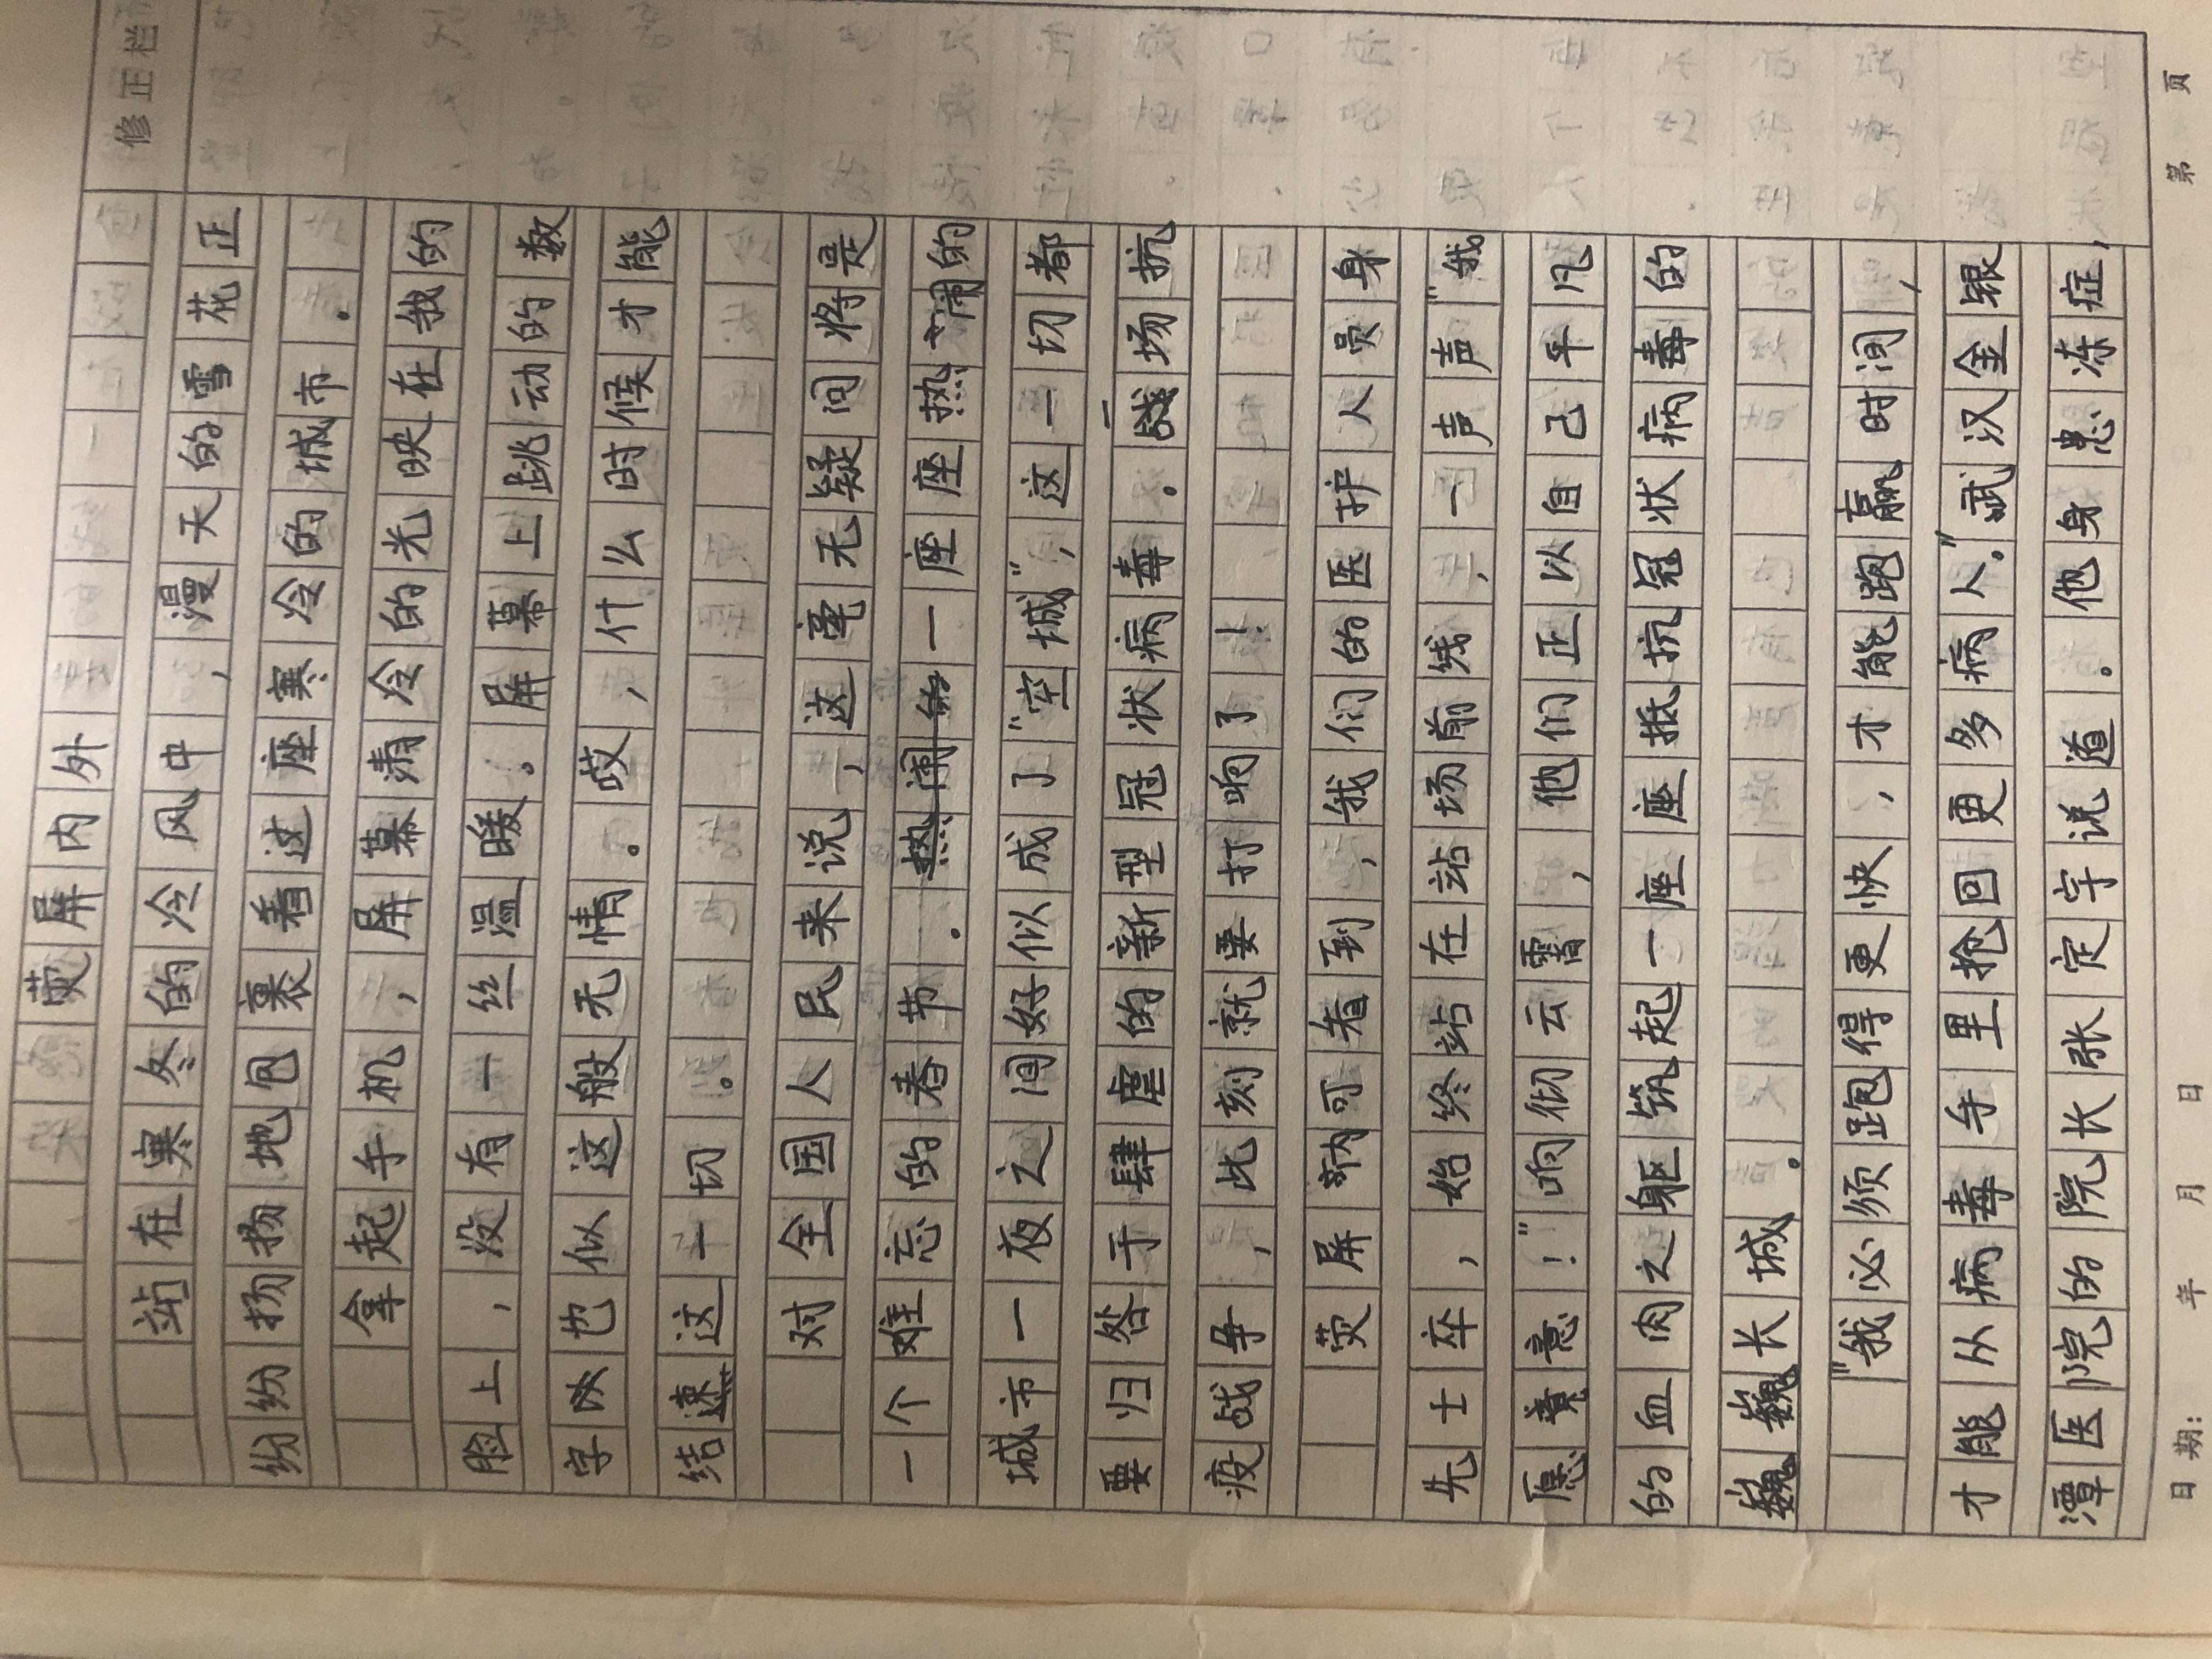 修正栏
荧屏内外
站在寒冬的冷风中，漫天的雪花正
纷纷扬扬地包裹着这座寒冷的城市。
拿起手机，屏幕清冷的光映在我的
脸上，没有一丝温暖。屏幕上跳动的数
字也似这般无情。哎，什么时候才能
结速这一切。
对全国人民来说，这毫无疑问将是
一个难忘的春节。一座座热闹的
城市一夜之间好似成了“空城”，这一切都
要归咎于肆虐的新型冠状病毒。一战场抗
疫战争，此刻就要打响了！
荧屏内可看到，我们的医护人员身
先士卒，始终站在站场前线，一声声“我
愿意！”响彻云霄，他们正以自己平凡
的血肉之躯筑起一座座抵抗冠状病毒的
巍巍长城。
“我必须跑得更快，才能跑赢时间，
才能从病毒手里抢回更多病人。”武汉金银
潭医院的院长张定宇说道。他身患冻症，
日期： 年 月 日 第 页